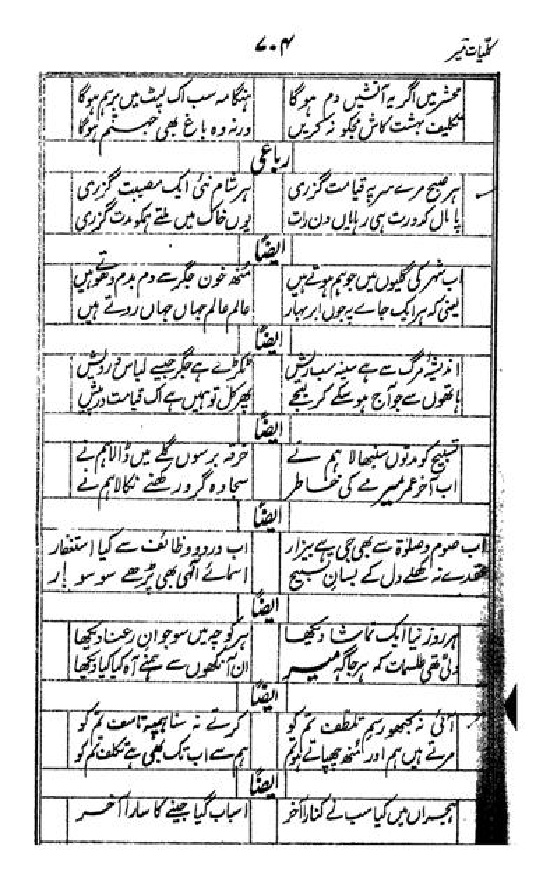 کلیات میر
۷۰۴
محشر میں اگر یہ آتشیں دم ہوگا ہنگامہ سب اک لپٹ میں برہم ہوگا
تکلیف بہشت کاش مجکو نہ کریں ورنہ وہ باغ بھی جہنم ہوگا
رباعی
ہر صبح مرے سر پہ قیامت گزری ہر شام نئی ایک مصیبت گزری
پامال کدورت ہی رہا یاں دن رات یوں خاک میں ملتے ہمکو مدت گزری
ایضاً
اب شہر کی گلیوں میں جو ہم ہوتے ہیں منھ خون جگر سے دم بدم دھوتے ہیں
یعنی کہ ہر ایک جاے پر جوں ابر بہار عالم عالم جہاں جہاں روتے ہیں
ایضاً
اندیشۂ مرگ سے ہے سینہ سب ریش ٹکڑے ہے جگر جیسے لباس درویش
ہاتھوں سے جو آج ہوسکے کر لیجے پھر کل تو ہمیں ہے اک قیامت درپیش
ایضاً
تسبیح کو مدتوں سنبھالا ہم نے خرقہ برسوں گلے میں ڈالا ہم نے
اب آخر عمر میر مے کی خاطر سجادہ گرو رکھنے نکالا ہم نے
ایضاً
اب صوم و صلوٰۃ سے بھی جی ہے بیزار اب ورد و وظائف سے کیا استغفار
عقدے نہ کھلے دل کے بسان تسبیح اسمائے الٰہی بھی پڑھے سو سو بار
ایضاً
ہر روز نیا ایک تماشا دیکھا ہر کوچہ میں سو جوان رعنا دیکھا
دلی تھی طلسمات کہ ہر جاگہ میر ان آنکھوں سے ہمنے آہ کیا کیا دیکھا
ایضاً
آئی نہ کبھو رسم تلطف تم کو کرتے نہ سنا ہمپہ تاسف تم کو
مرتے ہیں ہم اور منھ چھپاتے ہو تم ہم سے اب تک بھی ہے تکلف تم کو
ایضاً
ہجراں میں کیا سب نے کنارا آخر اسباب گیا جینے کا سارا آخر